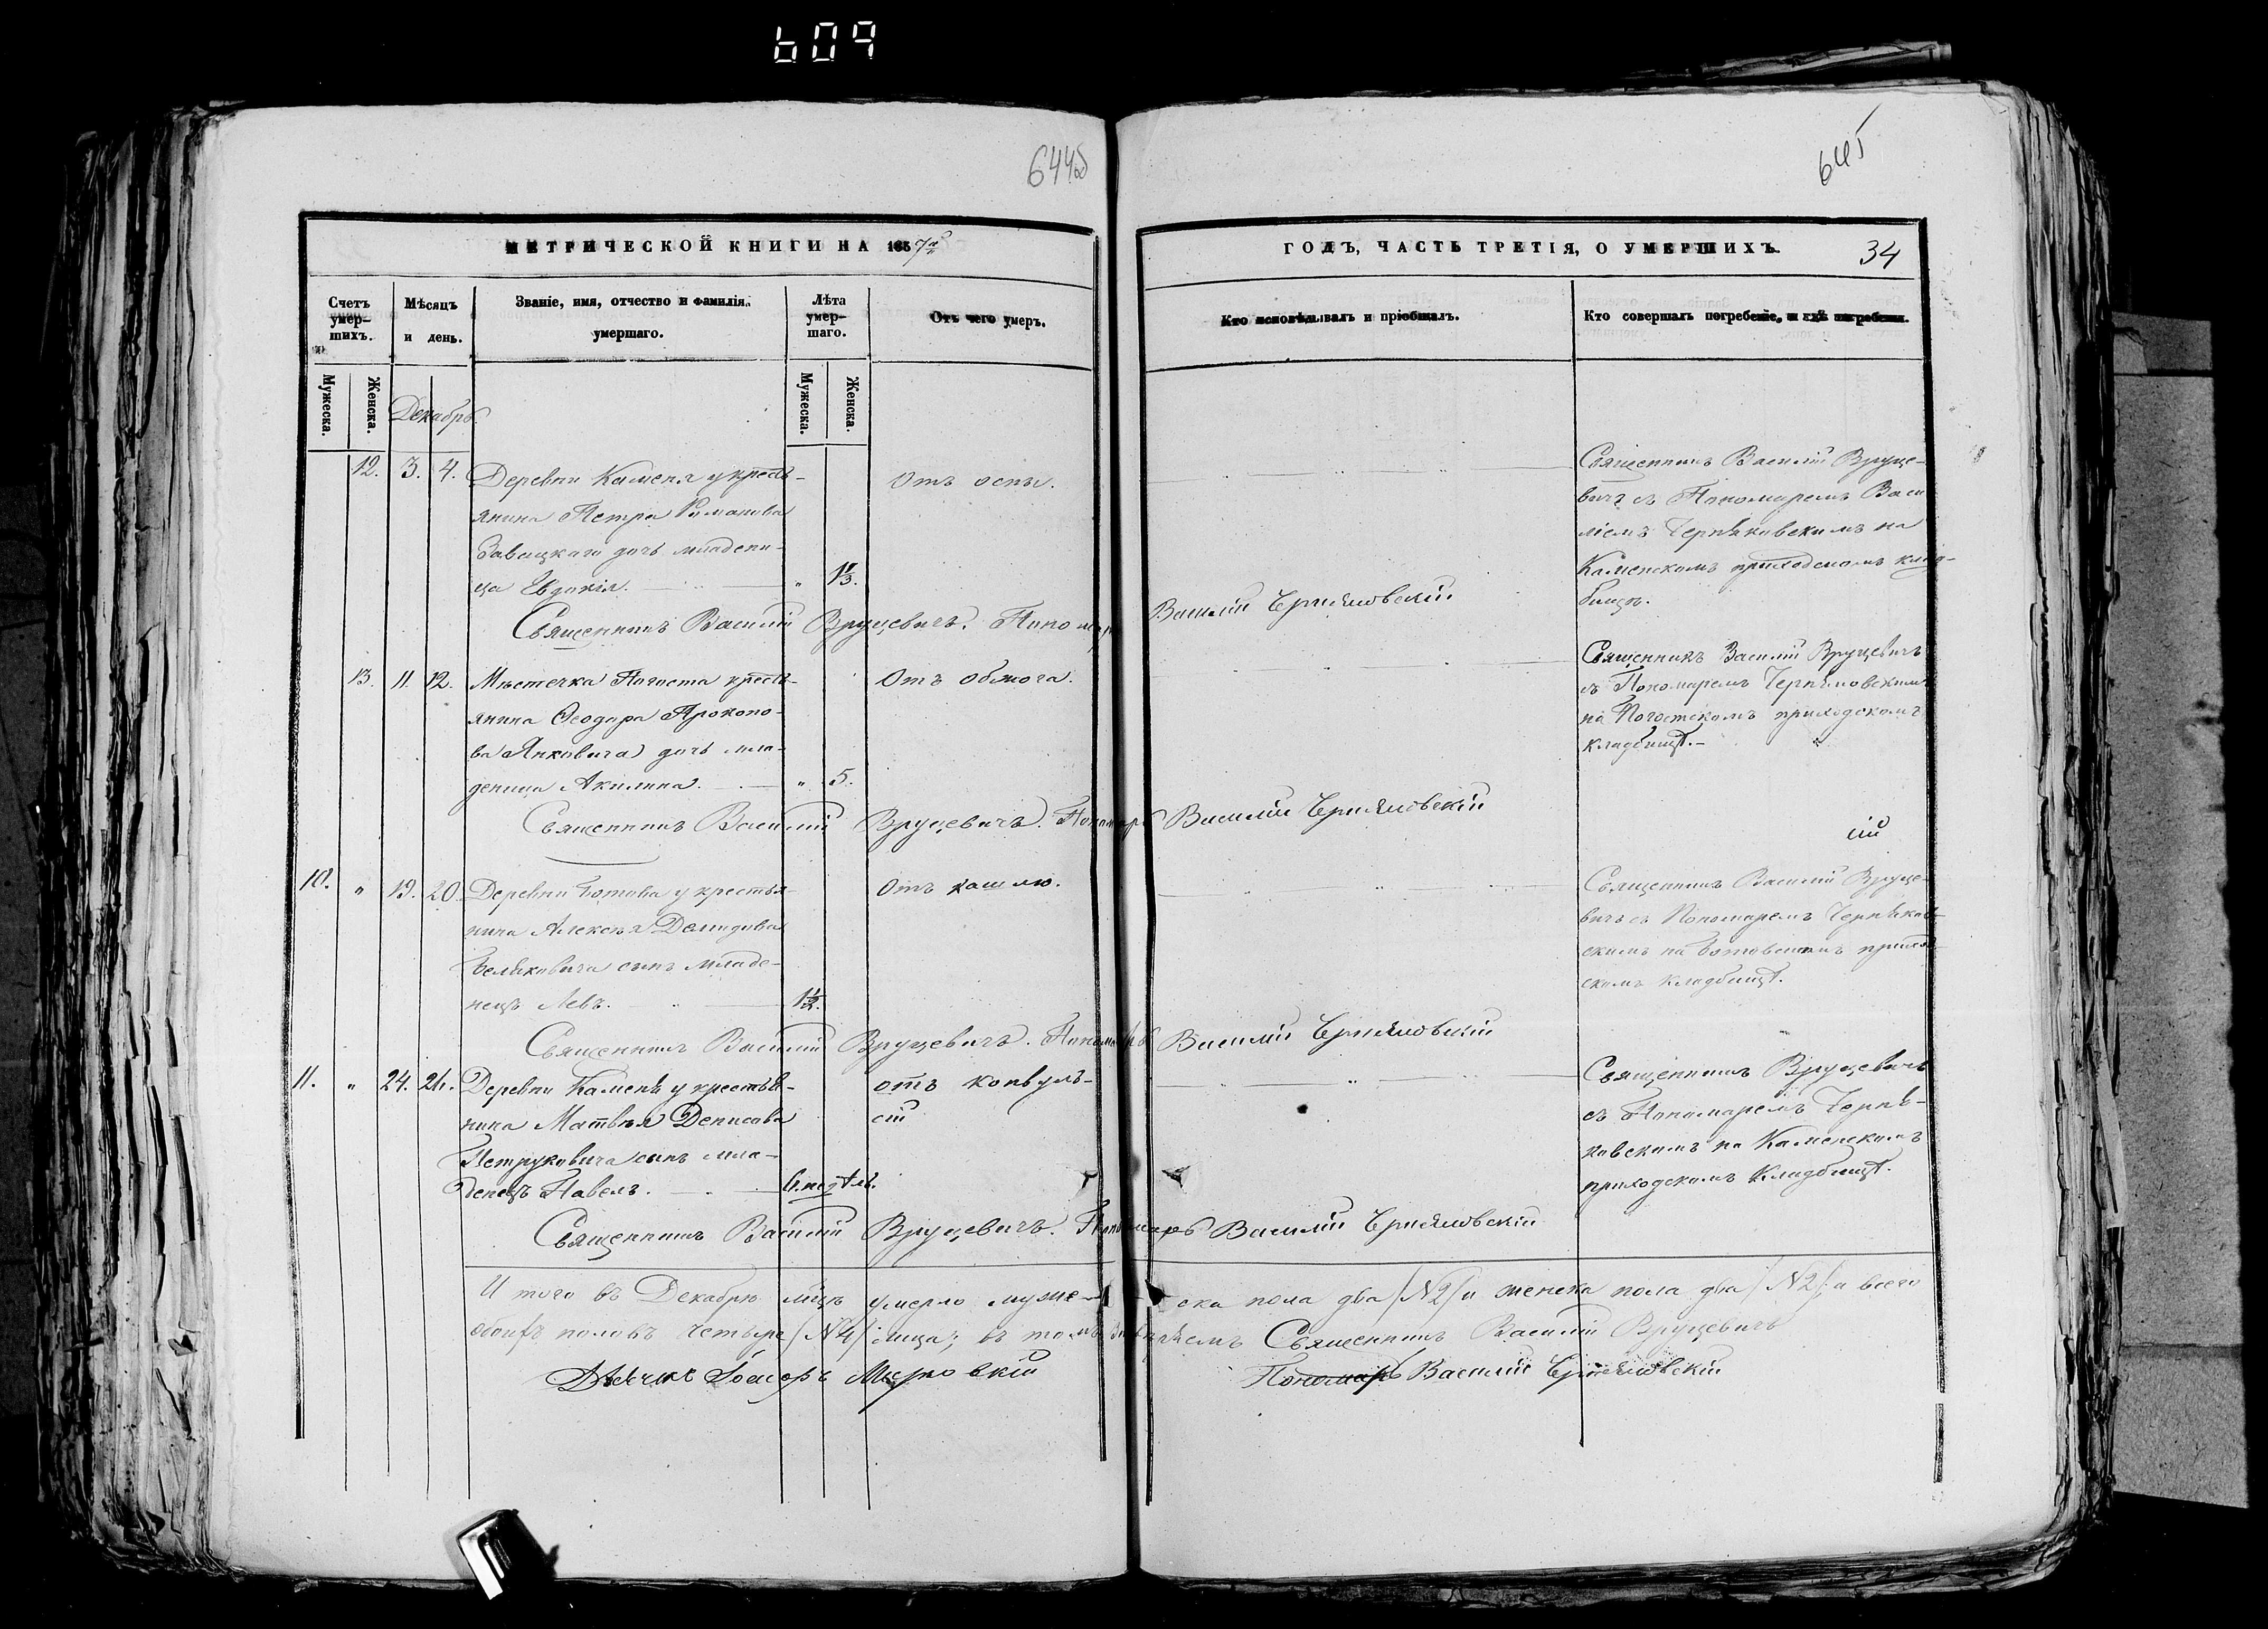 609
644об
645
МЕТРИЧЕСКОЙ КНИГИ НА 1857й
ГОДЪ, ЧАСТЬ ТРЕТІЯ, О УМЕРШИХЪ.
34
Счетъ умер-шихъ.
Мѣсяцъ и день.
Званіе, имя, отчество и фамилія умершаго.
Лѣта умер-шаго.
Отъ чего умеръ.
Кто исповѣдывалъ и пріобщалъ.
Кто совершалъ погребеніе, и гдѣ погребенъ.
Мужеска.
Женска.
Мужеска.
Женска.
Декабрь.
12. 3. 4. Деревни Каменя у кресть-
янина Петра Романова
Завацкаго дочь младени-
ца Евдокія. " 1⅓.
Отъ оспы.
Священникъ Василій Вруце-
вичъ съ Пономаремъ Васи
ліемъ Черняковскимъ на
Каменскомъ приходскомъ клад-
бищѣ.
Священникъ Василій Вруцевичъ. Пономарь Василій Черняковскій
13. 11. 12. Мѣстечка Погоста кресть-
янина Ѳеодора Прокопо-
ва Янковича дочь мла-
деница Акилина. " 5.
Отъ обжога.
Священникъ Василій Вруцевичъ
съ Пономаремъ Черняковскимъ
на Погостскомъ приходскомъ
кладбищѣ.
Священникъ Василій Вруцевичъ. Пономарь Василій Черняковскій
ій
10. " 19. 20. Деревни Ботова у крестья-
нина Алексѣя Демидова
Велѣковича сынъ младе-
нецъ Левъ. 1½.
Отъ кашлю.
Священникъ Василій Вруце-
вичъ съ Пономаремъ Черняков-
скимъ на Ботовскомъ приход-
скомъ кладбищѣ.
Священникъ Василій Вруцевичъ. Пономарь Василій Черняковскій
11. " 24. 26. Деревни Каменѣ у крестья-
нина Матвѣя Денисова
Петруковича сынъ мла-
денецъ Павелъ. 6. недѣль.
отъ конвуль-
сій
Священникъ Вруцевичъ
съ Пономаремъ Черня-
ковскимъ на Каменскомъ
приходскомъ кладбищѣ.
Священникъ Василій Вруцевичъ. Пономарь Василій Черняковскій
И того въ Декабрѣ мцѣ умерло муже-ска пола два /№2/ и женска пола два /№2/, а всего
обоихъ половъ четыре /№4/ лица; въ томъ Священникъ Василій Вруцевичъ
Дьячикъ
Пономарь Василій Черняковскій